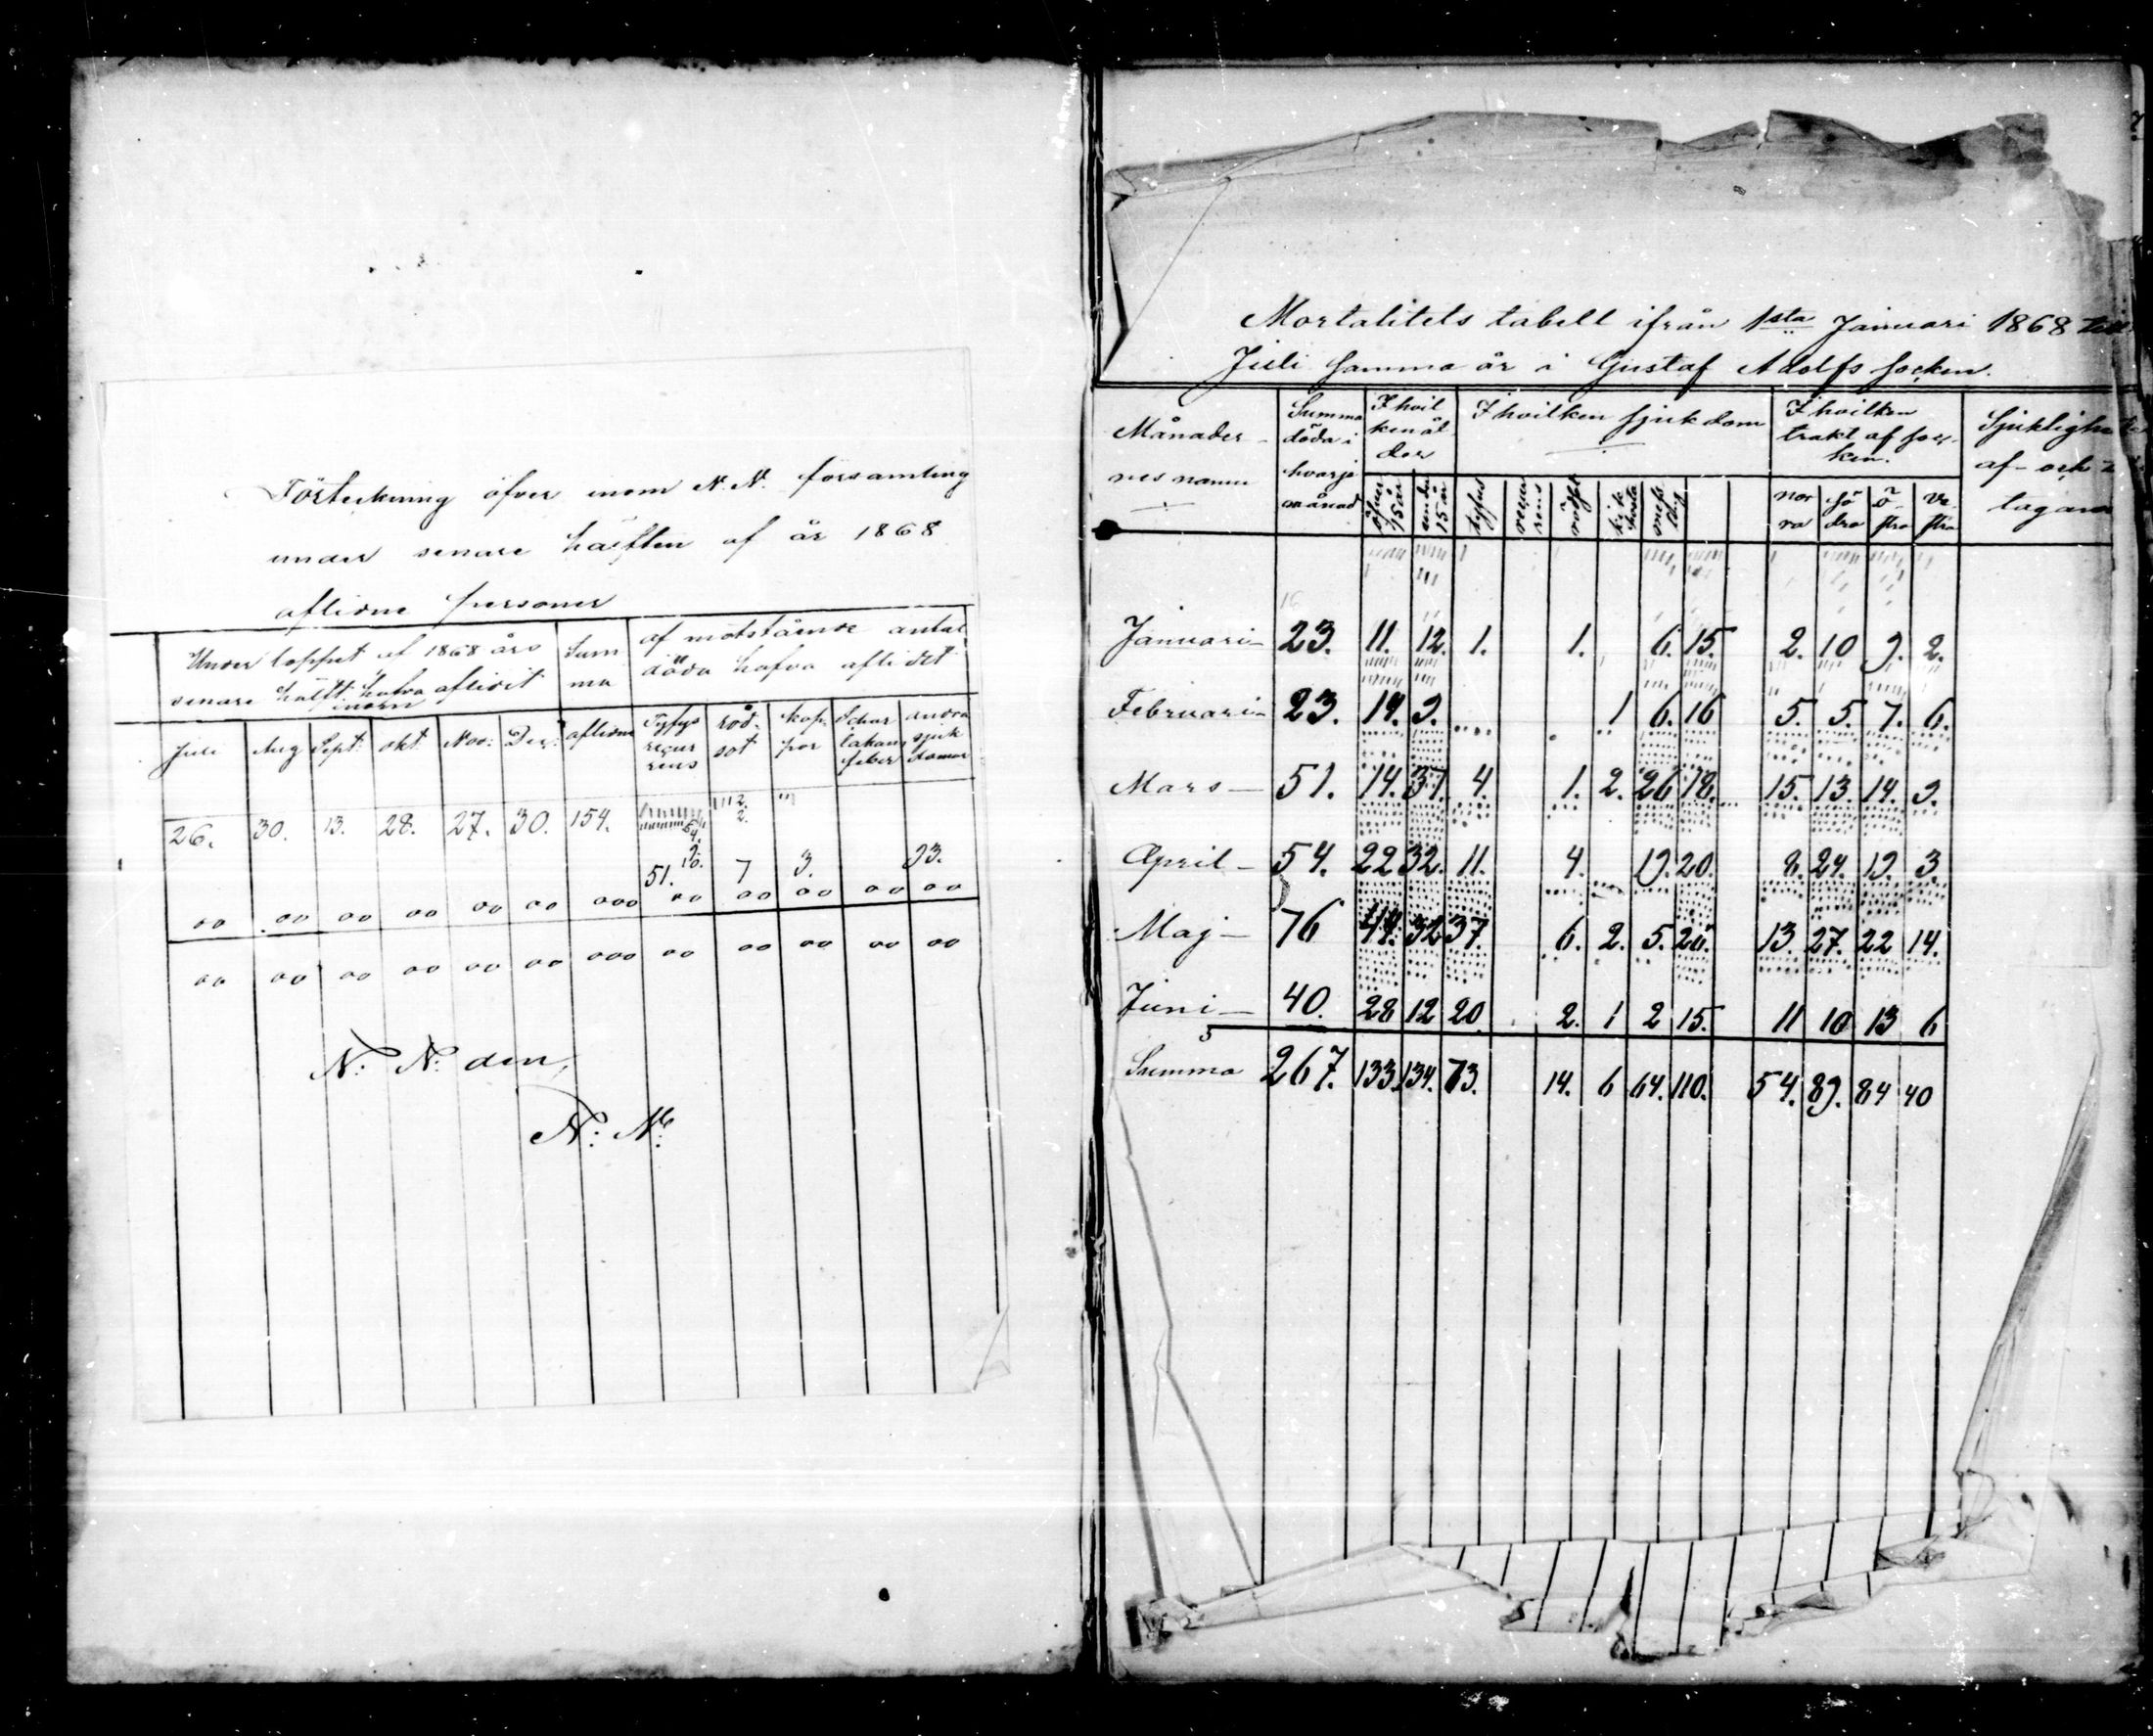 Förteckning öfver inom N. N. församling
under senare hälften af år 1868
aflidne personer
Under loppet af 1868 års
senare hälft hafva aflidit
inom
Sum
ma
aflidne
af motstående antal
döda hafva aflidit
Juli Aug Sept: okt. Nov: Dec:
Tyfys
recur
rens
röd-
sot
kop-
por
Schar
lakans
feber
andra
sjuk
domar
26. 30. 13. 28. 27. 30. 154.
51. 7 3. 93.
oo oo oo oo oo oo ooo oo oo oo oo oo
oo oo oo oo oo oo ooo oo oo oo oo oo
N: N: den
N: N:
Mortalitets tabell ifrån 1sta Januari 1868 till
Juli samma år i Gustaf Adolfs socken.
Månader-
nes namn
Summa
döda i
hvarje
månad
I hvil
ken ål
der
öfver
15 år
under
15 år
I hvilken sjukdom
tyfus
recur
rens
rödsot
kik
hosta
I hvilken
trakt af soc-
ken.
nor
ra
sö
dra
ö-
stra
ve-
stra
Sjuklighe
af- och
tagan
Januari 23. 11. 12. 1. 1. 6. 15. 2. 10 9. 2.
Februari 23. 14. 9. 1 6. 16 5. 5. 7. 6.
Mars 51. 14. 37. 4. 1. 2. 26 18. 15. 13. 14. 9.
April 54. 22 32. 11. 4. 19. 20. 8. 24. 19. 3.
Maj 76 44. 32 37. 6. 2. 5. 26. 13. 27. 22 14.
Juni 40. 28 12 20 2. 1 2 15. 11 10 13 6
Summa 267. 133. 134. 73. 14. 6 64. 110. 54. 89. 84 40